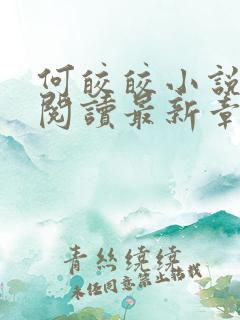 何皎皎小說
閱讀最新章
青絲繞繞
未經同意禁止轉載